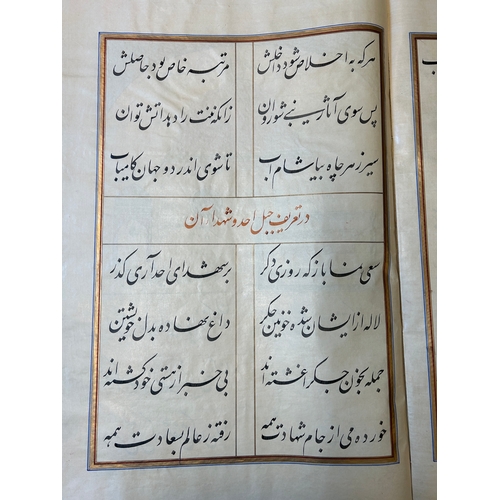 هرکه به اخلاص شود داخلش مرتبه خاص بود حاصلش
پس سوی آثار نبی شو روان زانکه توان
سیر ز هر چاه بیاشام آب تا شوی اندر دو جهان کامیاب
در تعریف جبل احد و شهدا آن
سعی نما باز که روزی دگر بر شهدای احد آری گذر
لاله از ایشان شده خونین جگر داغ نهاده بدل خویشتن
جمله بخون جگر آغشته اند بی خبر از هستی خود گشته اند
خورده می از جام شهادت همه رفته ز عالم بسعادت همه